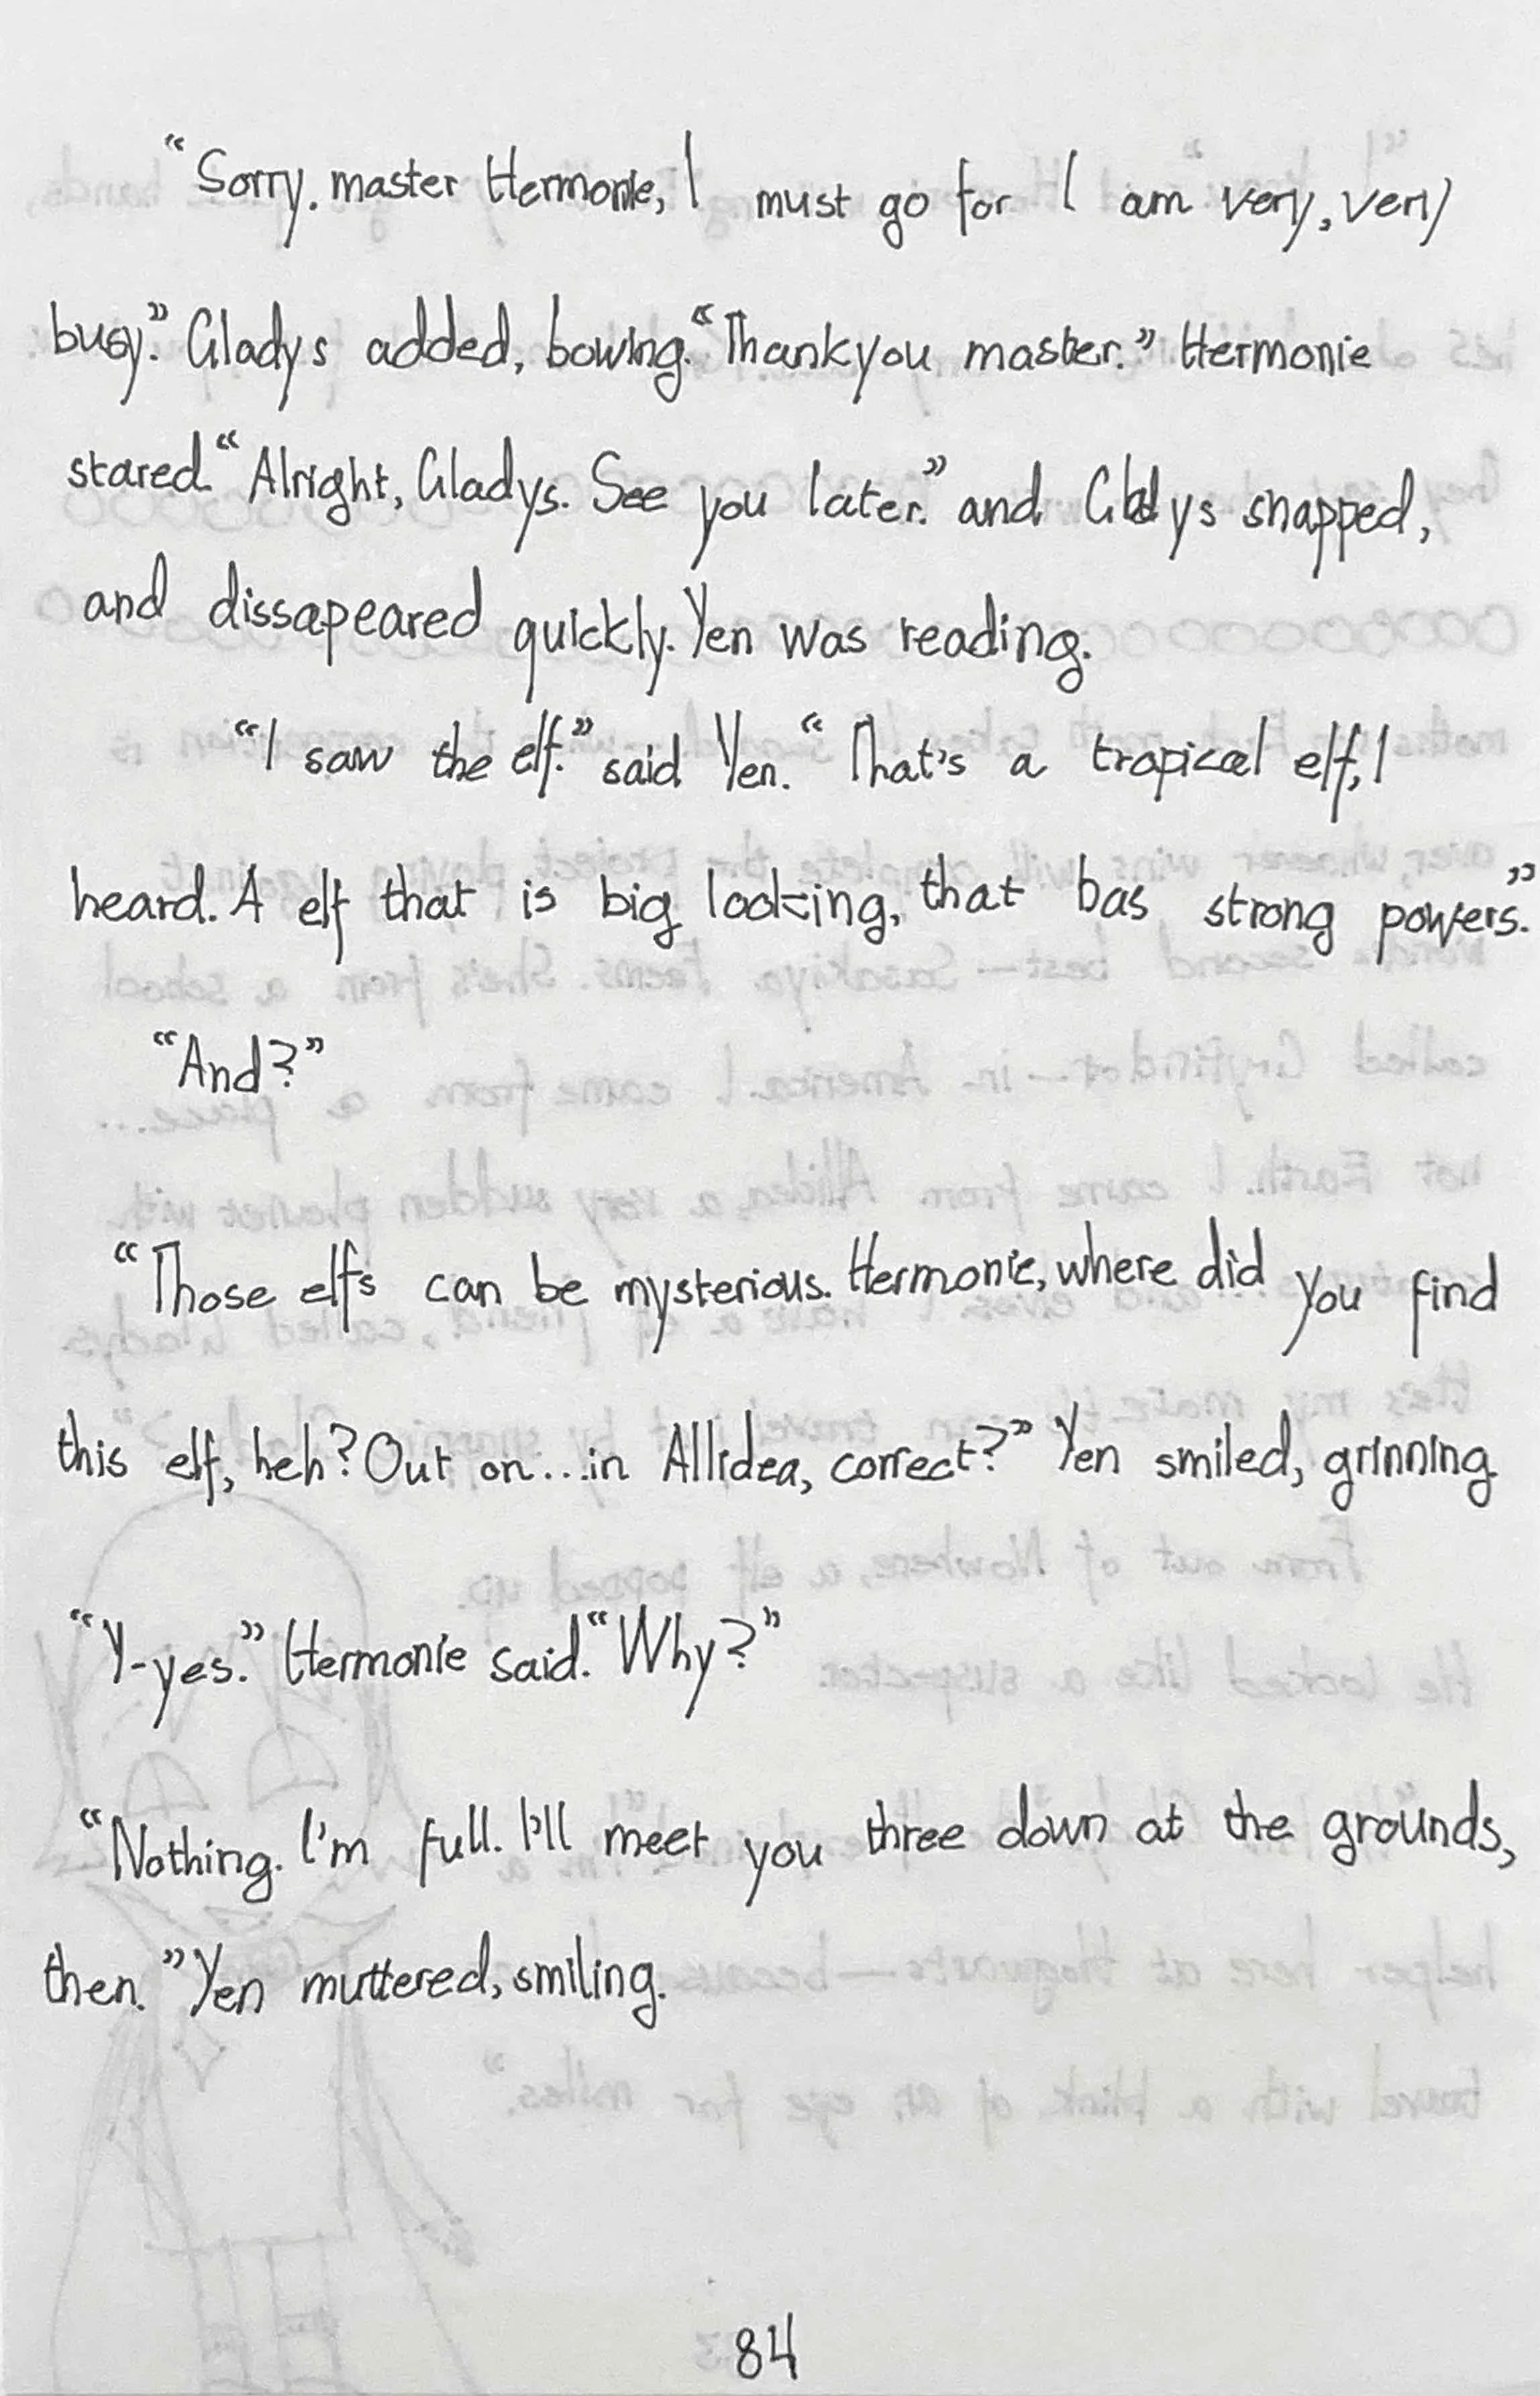 “Sorry. master Hermonie, I must go for I am very, very
busy.” Gladys added, bowing. “Thankyou master.” Hermonie
stared. “Alright, Gladys. See you later.” and Gladys snapped,
and dissapeared quickly. Yen was reading.
“I saw the elf.” said Yen. “That's a tropical elf, I
heard. A elf that is big looking, that has strong powers.”
“And?”
“Those elfs can be mysterious. Hermonie, where did you find
this elf, heh? Out on...in Allidea, correct?” Yen smiled, grinning.
“Y-yes.” Hermonie said. “Why?”
“Nothing. I'm full. I'll meet you three down at the grounds,
then.” Yen muttered, smiling.
84